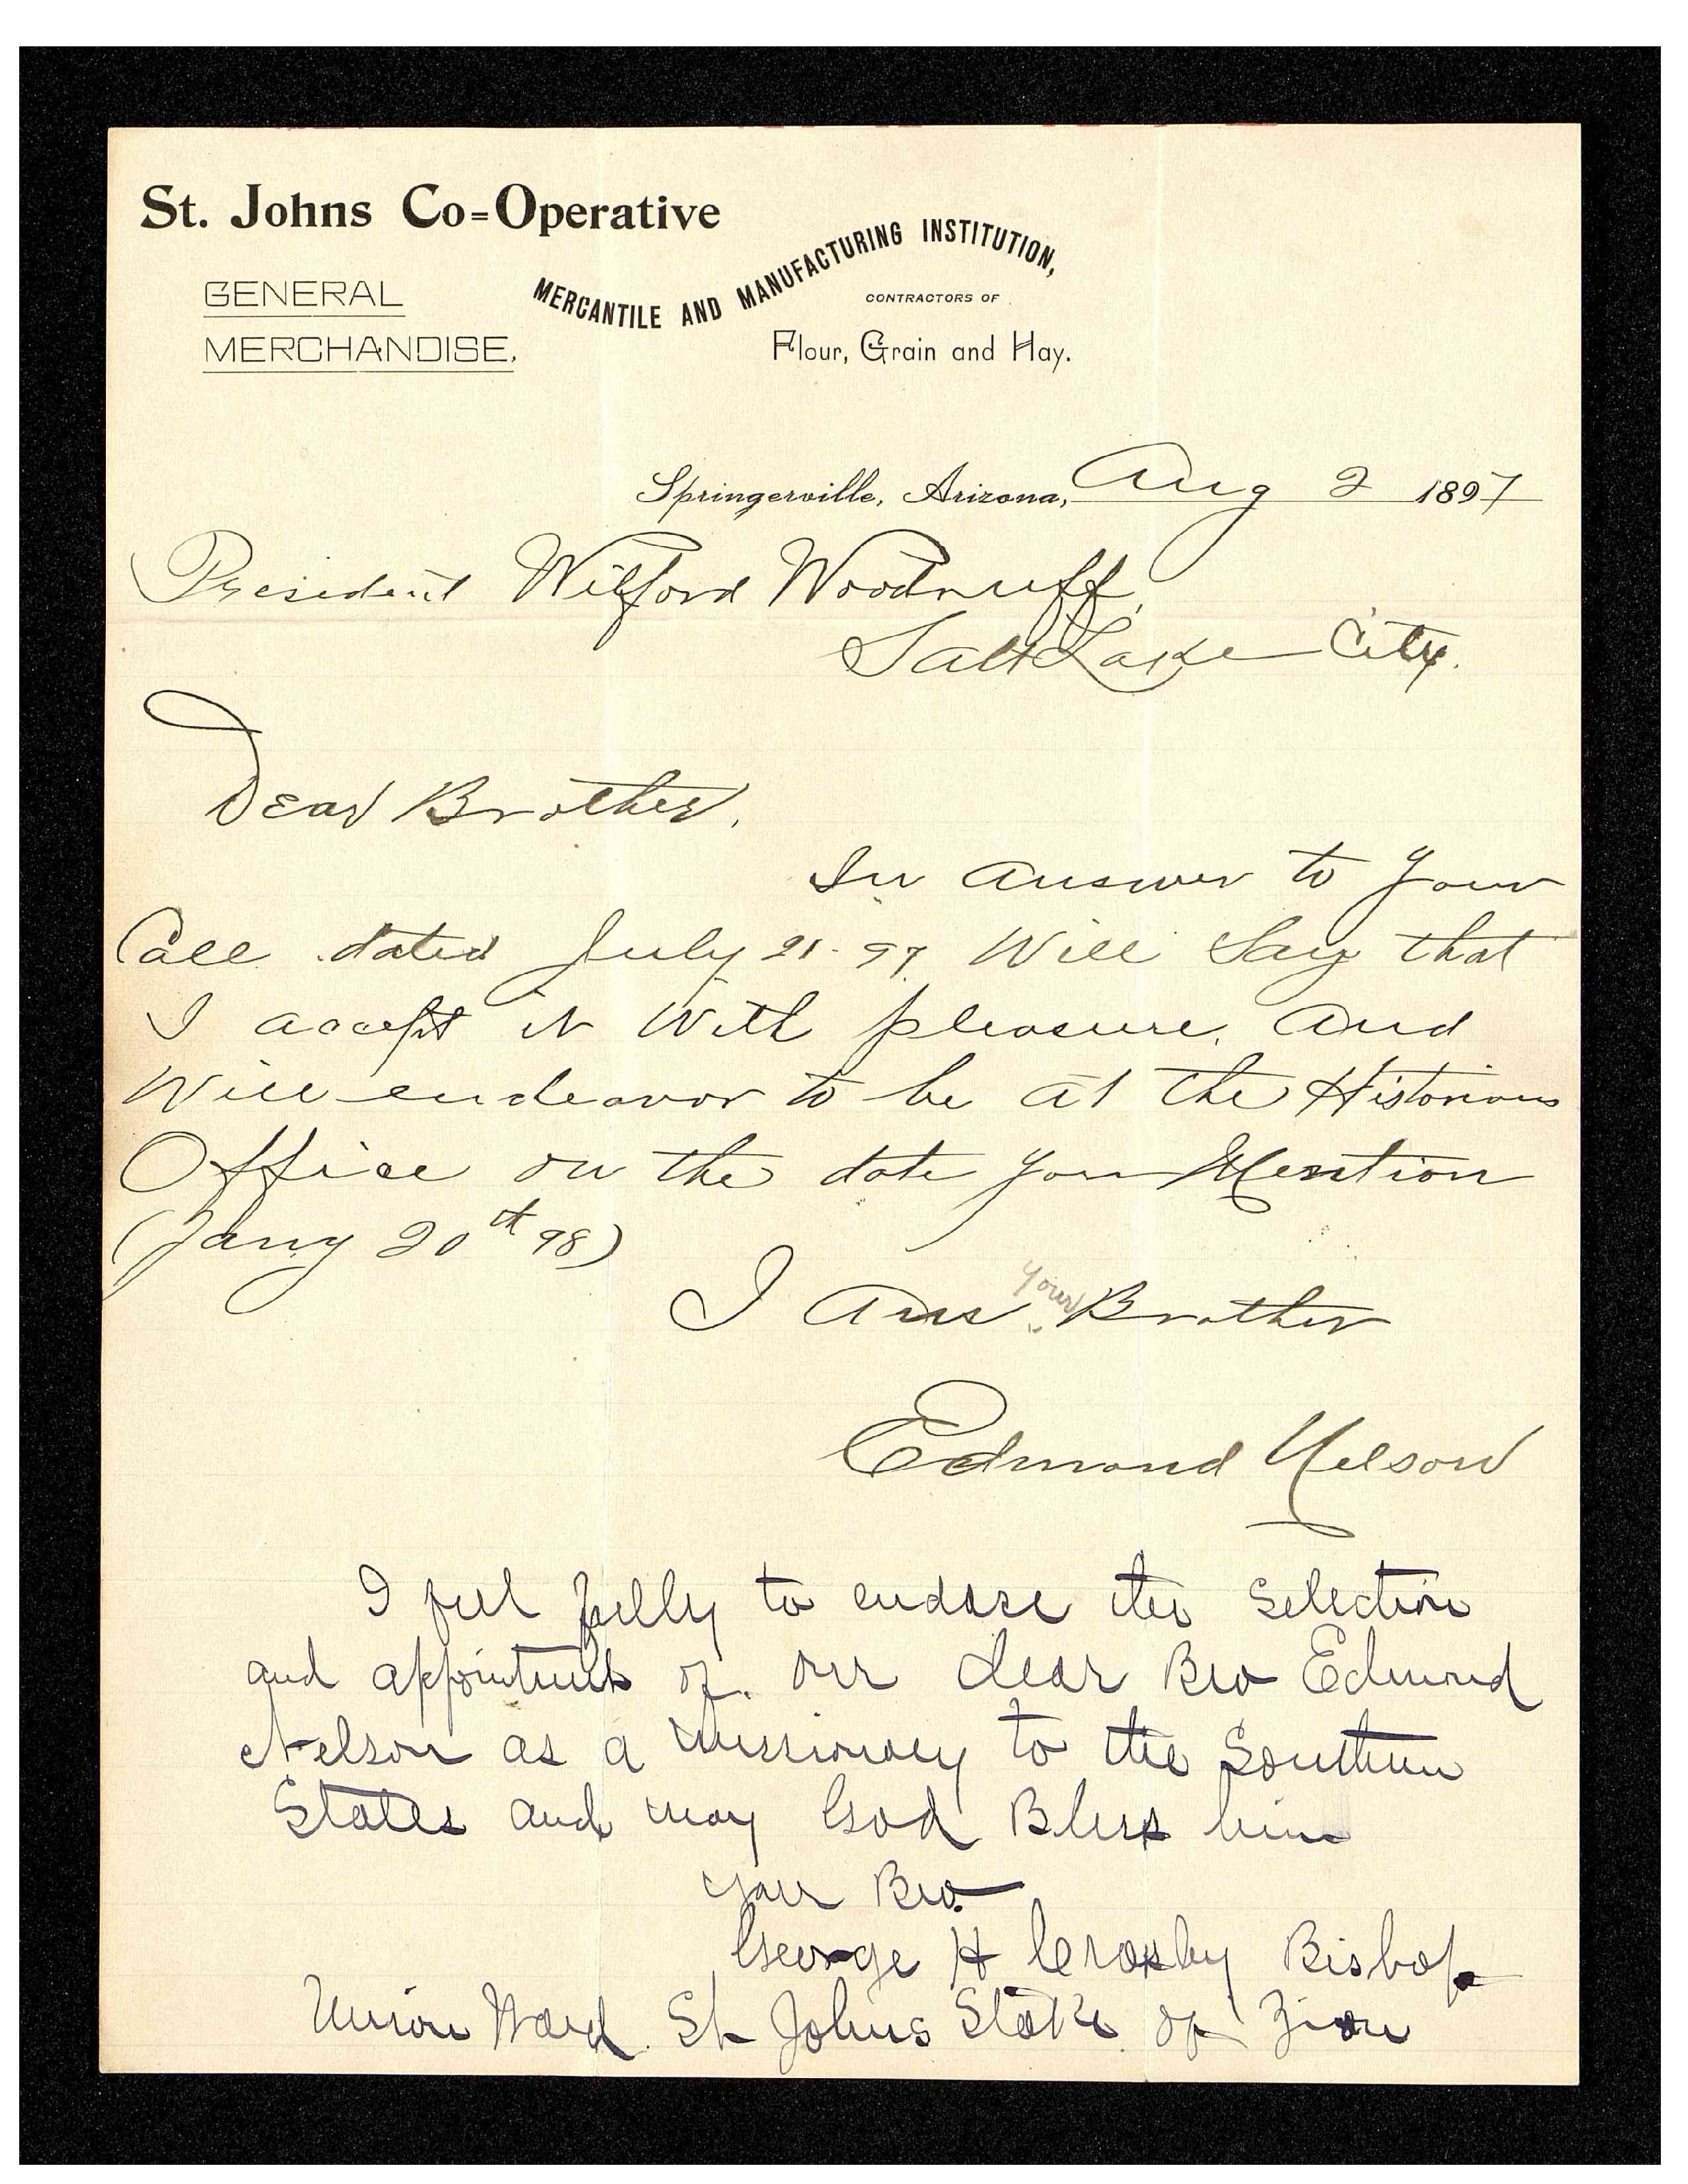 St. Johns Co=Operative
MERCANTILE AND MANUFACTURING INSTITUTION,
GENERAL
MERCHANDISE.
CONTRACTORS OF
Flour, Grain and Hay.
Springerville, Arizona, Aug 2 1897
President Wilford Woodruff,
Salt Lake City.
Dear Brother,
In answer to your
Call dated July 21-97 Will Say that
I accept it With pleasure, and
Will endeavor to be at the Historians
Office on the date you Mention
(Jany 20th 98)
I am your Brother
Edmond Nelson
I feel fully to endose the Selection
and appointment of our dear Bro Edmond
Nelson as a missionary to the Southern
States and may God Bless him
your Bro.
George H Crosby Bishop
Union Ward. St Johns Stake of Zion